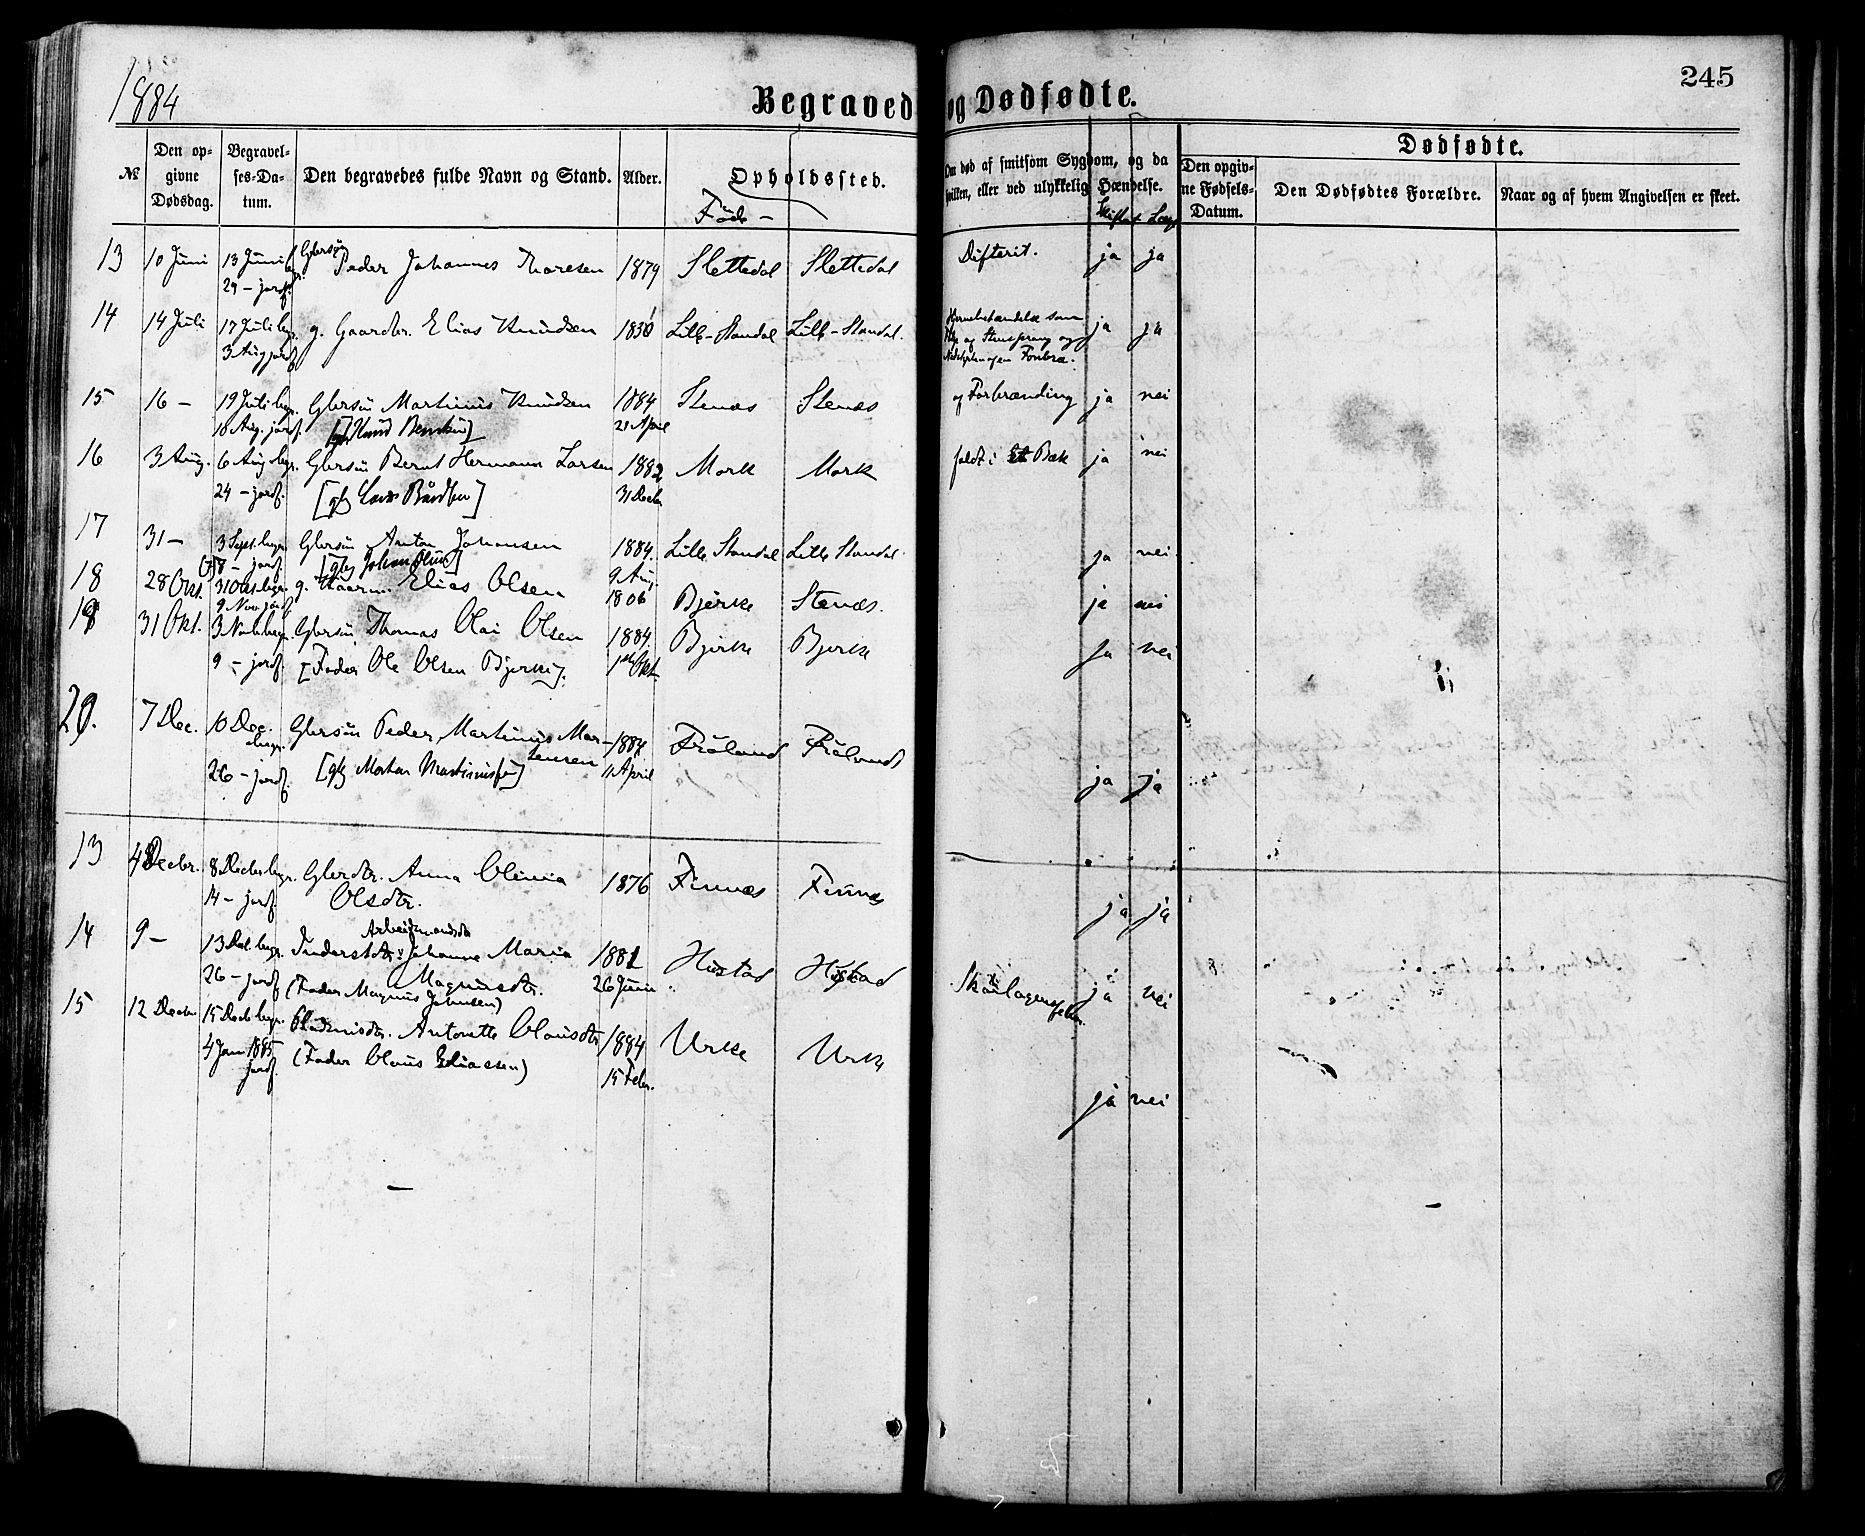 1884
Begravede og Dødfødte.
245
№
Den opgivne Dødsdag.
Begravelses-Datum.
Den begravedes fulde Navn og Stand.
Alder.
Opholdssted.
Føde-
Om død af smitsom Sygdom, og da hvilken, eller ved ulykkelig Hændelse.
Skiftet Læge
Dødfødte.
Den opgivne Fødsels-Datum.
Den Dødfødtes Forældre.
Naar og af hvem Angivelsen er skeet.
13 10 Juni 13 Juni begr. Gbrsøn Peder Johannes Thoresen 1879 Slettedal Slettedal Difterit. ja ja
29 - jordf.
14 14 Juli 17 Juli begr. g. Gaardbr. Elias Knudsen 1830 Lille-Standal Lille-Standal. ja ja
3 Aug jordf.
15 16 - 19 Juli begr. Gbrsøn Martinus Knudsen 1884 Stenæs Stenæs og Forbrænding ja nei
18 Aug. jordf. 21 April
16 3 Aug. 6 Aug begr. Gbrsøn Bernt Hermann Larsen 1882 Mork Mork faldt i Bæk ja nei
24 - jordf. 31 Decbr
17 31 - 3 Sept. begr. Gbrsøn Anton Johansen 1884. Lille Standal Lille Standal. ja nei
- jordf. 9 Aug.
18 28 Okt. 31 Okt. begr. g. Elias Olsen 1806 Bjørke Stenæs. ja nei
9 Nov. jordf.
19 31 Okt. 3 Novb. begr. Gbrsøn Thomas Olai Olsen 1884. Bjørke Bjørke ja nei
9 - jordf. [Fader Ole Olsen Bjørke]. 1 Okt.
20. 7 Dec. 10 Dec. begr. Gbrsøn Peder Martinus Mar- 1884 Frøland Frøland ja ja
tensen
26 - jordf. 11 April
13 4 Decbr. 8 Decbr begr. Gbrdtr. Anna Olivia 1876 Finnæs Finnæs ja ja
14 - jordf. Olsdtr.
14 9 - 13 Dec. begr. Inderstdtr. Johanne Maria 1881 Hustad Hustad Skarlagensfeber. ja nei
26 - jordf. Magnusdtr. 26 Juni
(Fader Magnus Johnsen)
15 12 Decbr 15 Decb begr. Antonette Olausdtr 1884 Urke Urke ja nei
4 Jan 1885 jordf. (Fader Olaus Eliassen) 15 Febr.